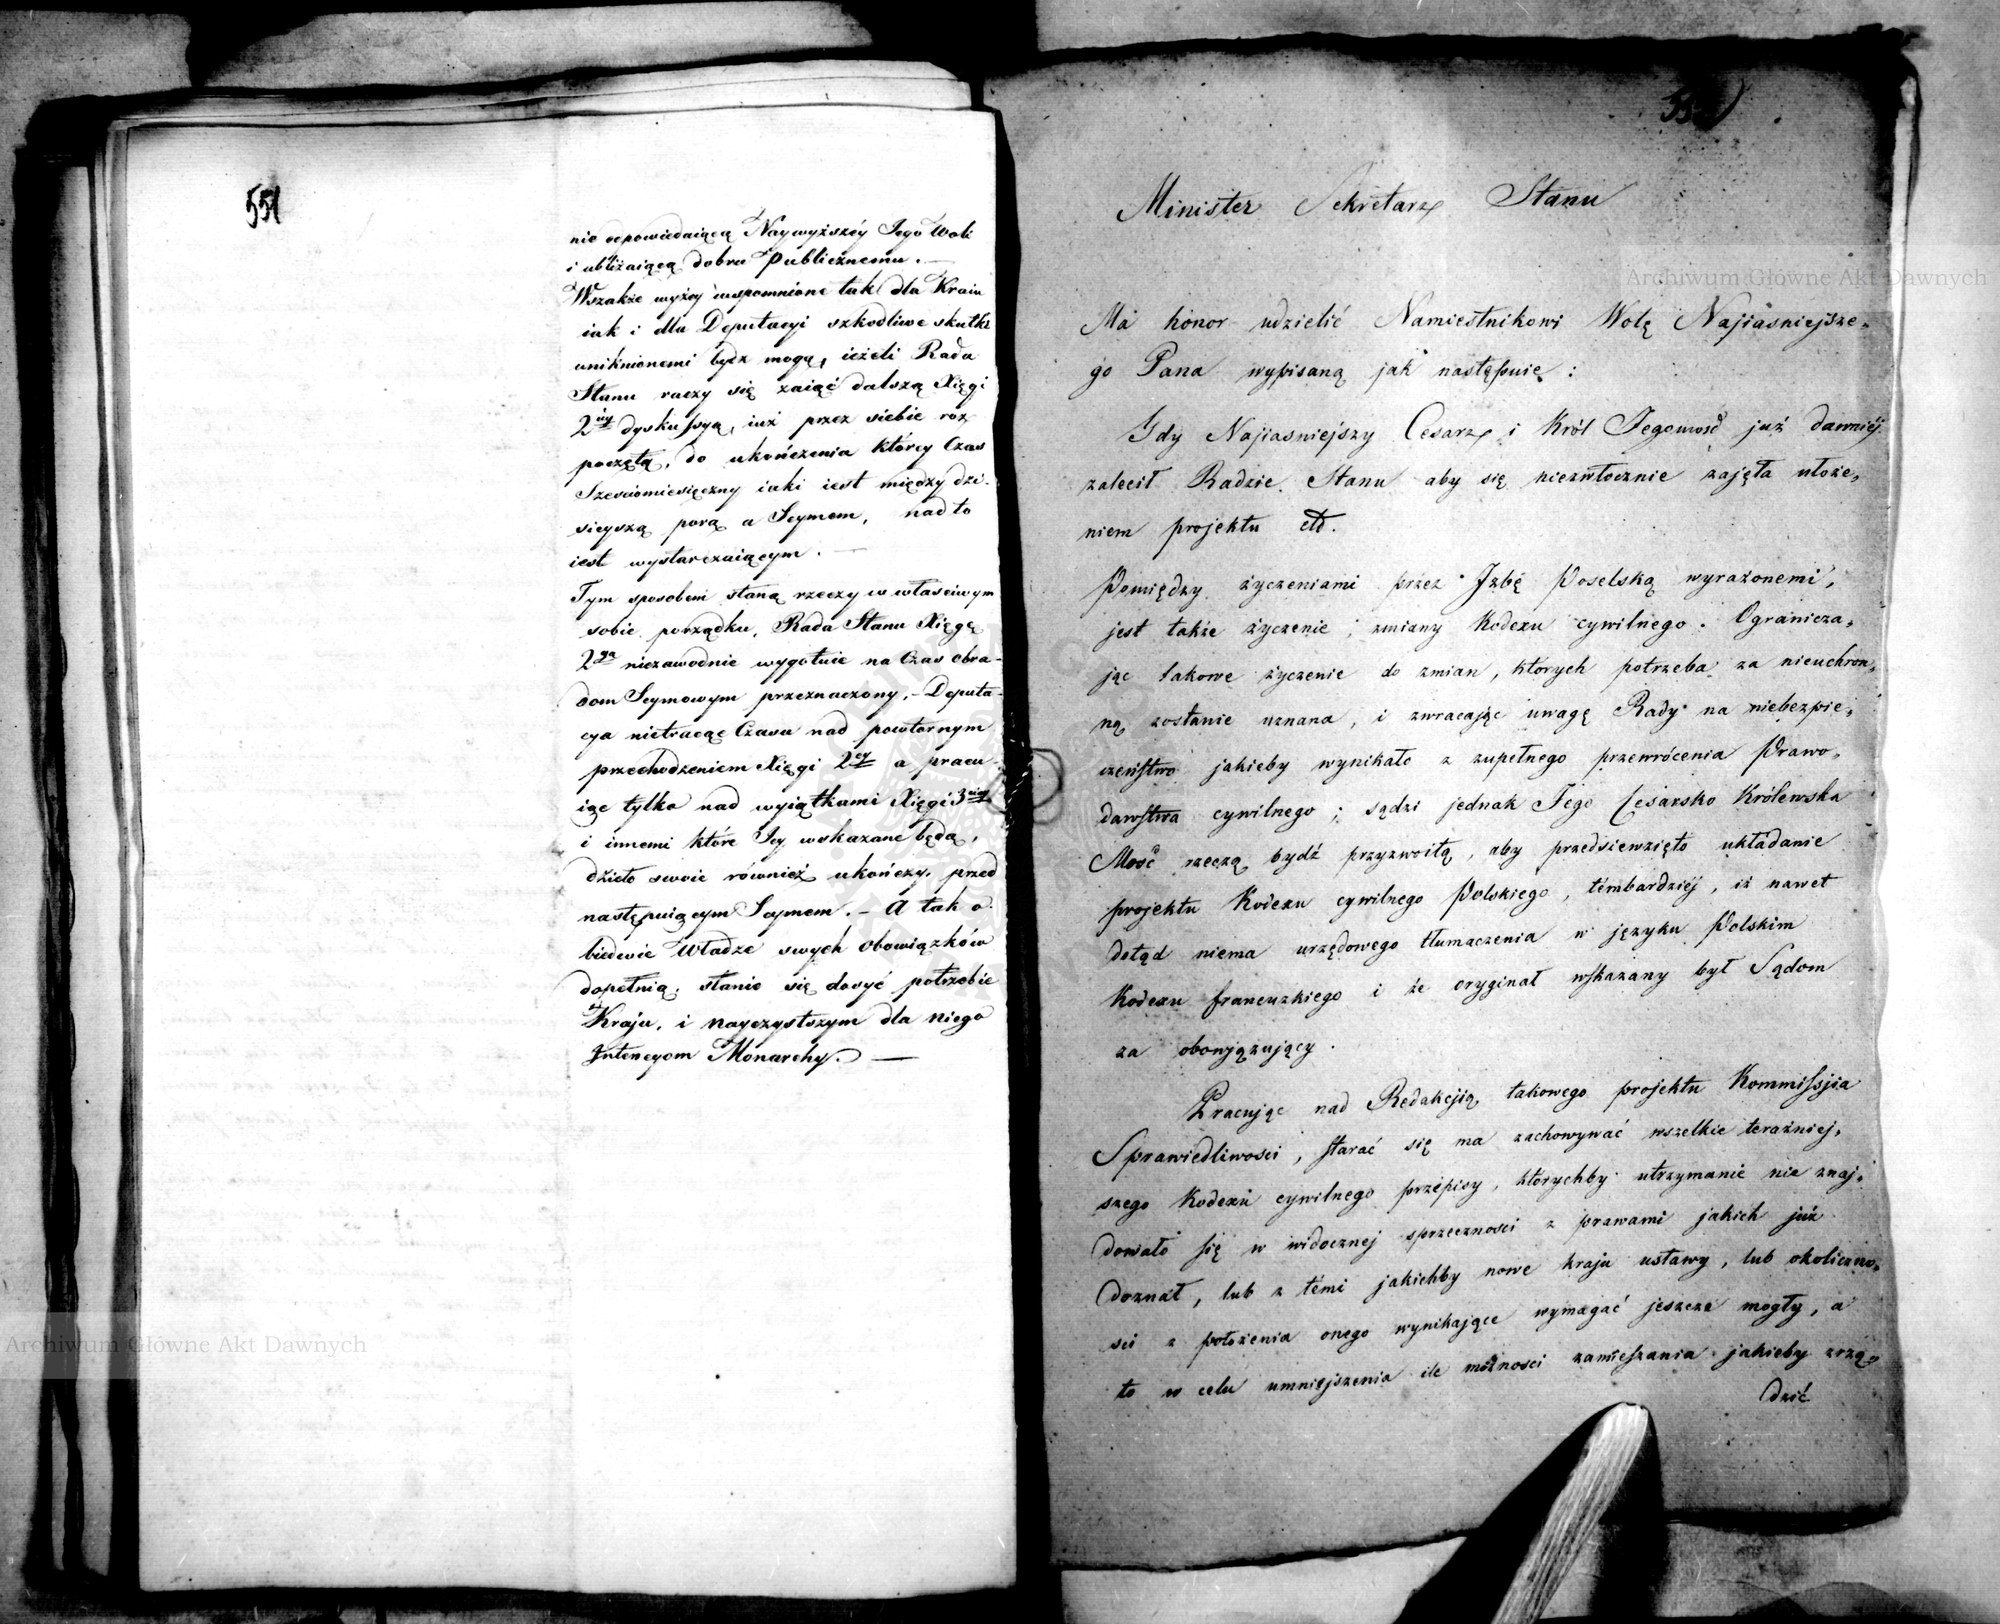 551
nie odpowiedaiącą Naywyższéy Jego Woli
i ubliżaiącą dobru Publicznemu. —
Wszakże wyżéy wspomnione tak dla Kraiu
iak i dla Deputacyi szkodliwe skutki
uniknionemi bydz mogą, ieżeli Rada
Stanu raczy się zaiąć dalszą Xięgi
2iéy dyskussyą, iuż przez siebie roz
poczętą, do ukończenia którey Czas
Sześciomiesięczny iaki iest między dzi-
sieyszą porą a Seymem, nadto
iest wystarczaiącym. —
Tym sposobem staną rzeczy w właściwym
sobie porządku, Rada Stanu Xięgę
2gą niezawodnie wygotuie na Czas obra-
dom Seymowym przeznaczony, – Deputa-
cya nietracąc Czasu nad powtornym
przechodzeniem Xięgi 2ey a pracu-
iąc tylko nad wyiątkami Xięgi 3ciey
i innemi które Jey wskazane będą,
dzieło swoie również ukończy, przed
następuiącym Seymem. – A tak o
biedwie Władze swych obowiązków
dopełnią, stanie się dosyć potrzebie
Kraju, i nayczystszym dla niego
Intencyom Monarchy. —
Minister Sekretarz Stanu
Ma honor udzielić Namiestnikowi Wolę Najiasniejsze-
go Pana wypisaną jak następuie :
Gdy Najiasniejszy Cesarz i Król Jegomość już dawniéj
zalecił Radzie Stanu aby się niezwłocznie zajęła ułoże-
niem projektu etc.
Pomiędzy życzeniami przez Izbę Poselską wyrażonemi,
jest także życzenie, zmiany Kodexu cywilnego. Ogranicza-
jąc takowe życzenie do zmian, których potrzeba za nieuchron-
ną zostanie uznana, i zwracając uwagę Rady na niebezpie-
czeństwo jakieby wynikało z zupełnego przewrócenia Prawo-
dawstwa cywilnego; sądzi jednak Jego Cesarsko Królewska
Mość rzeczą bydź przyzwoitą, aby przedsiewzięto układanie
projektu Kodexu cywilnego Polskiego, témbardziéj, iż nawet
dotąd niema urzędowego tłumaczenia w języku Polskim
Kodexu francuzkiego i że oryginał wskazany był Sądom
za obowjązujący.
Pracując nad Redakcjią takowego projektu Kommissjia
Sprawiedliwosci, starać się ma zachowywać wszelkie teraźniej-
szego Kodexu cywilnego przepisy, którychby utrzymanie nie znaj-
dowało się w widocznej sprzeczności z prawami jakich już
doznał, lub z témi jakichby nowe kraju ustawy, lub okoliczno-
sci z położenia onego wynikające wymagać jeszcze mogły, a
to w celu umniejszenia ile możności zamieszania jakieby zrzą-
dzić
Archiwum Główne Akt Dawnych
Archiwum Główne Akt Dawnych